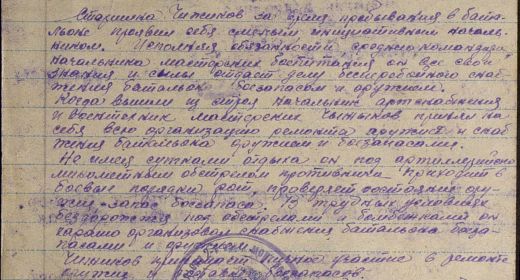 Старшина Чижиков за время пребывания в баталь-
ионе проявил себя смелым инициативным началь-
ником. Исполняя обязанности среднего командира
начальника мастерских боепитания он все свои
знания и силы отдает делу бесперебойного снаб-
жения батальона боезапасом и оружием.
Когда вышли из строя начальник артснабжения
и воентехник мастерских Чижиков принял на
себя всю организацию ремонта оружия и снаб-
жения батальона оружием и боезапасами.
Не имея сутками отдыха он под артиллерийско
минометным обстрелом противника приходит в
боевые порядки рот, проверяет состояние ору-
жия запас боезапаса. В трудных условиях
бездорожья под обстрелами и бомбежками он
хорошо организовал снабжения батальона боеза-
пасами и оружием.
Чижиков принимает личное участие в ремонте
оружия и боезапасов.